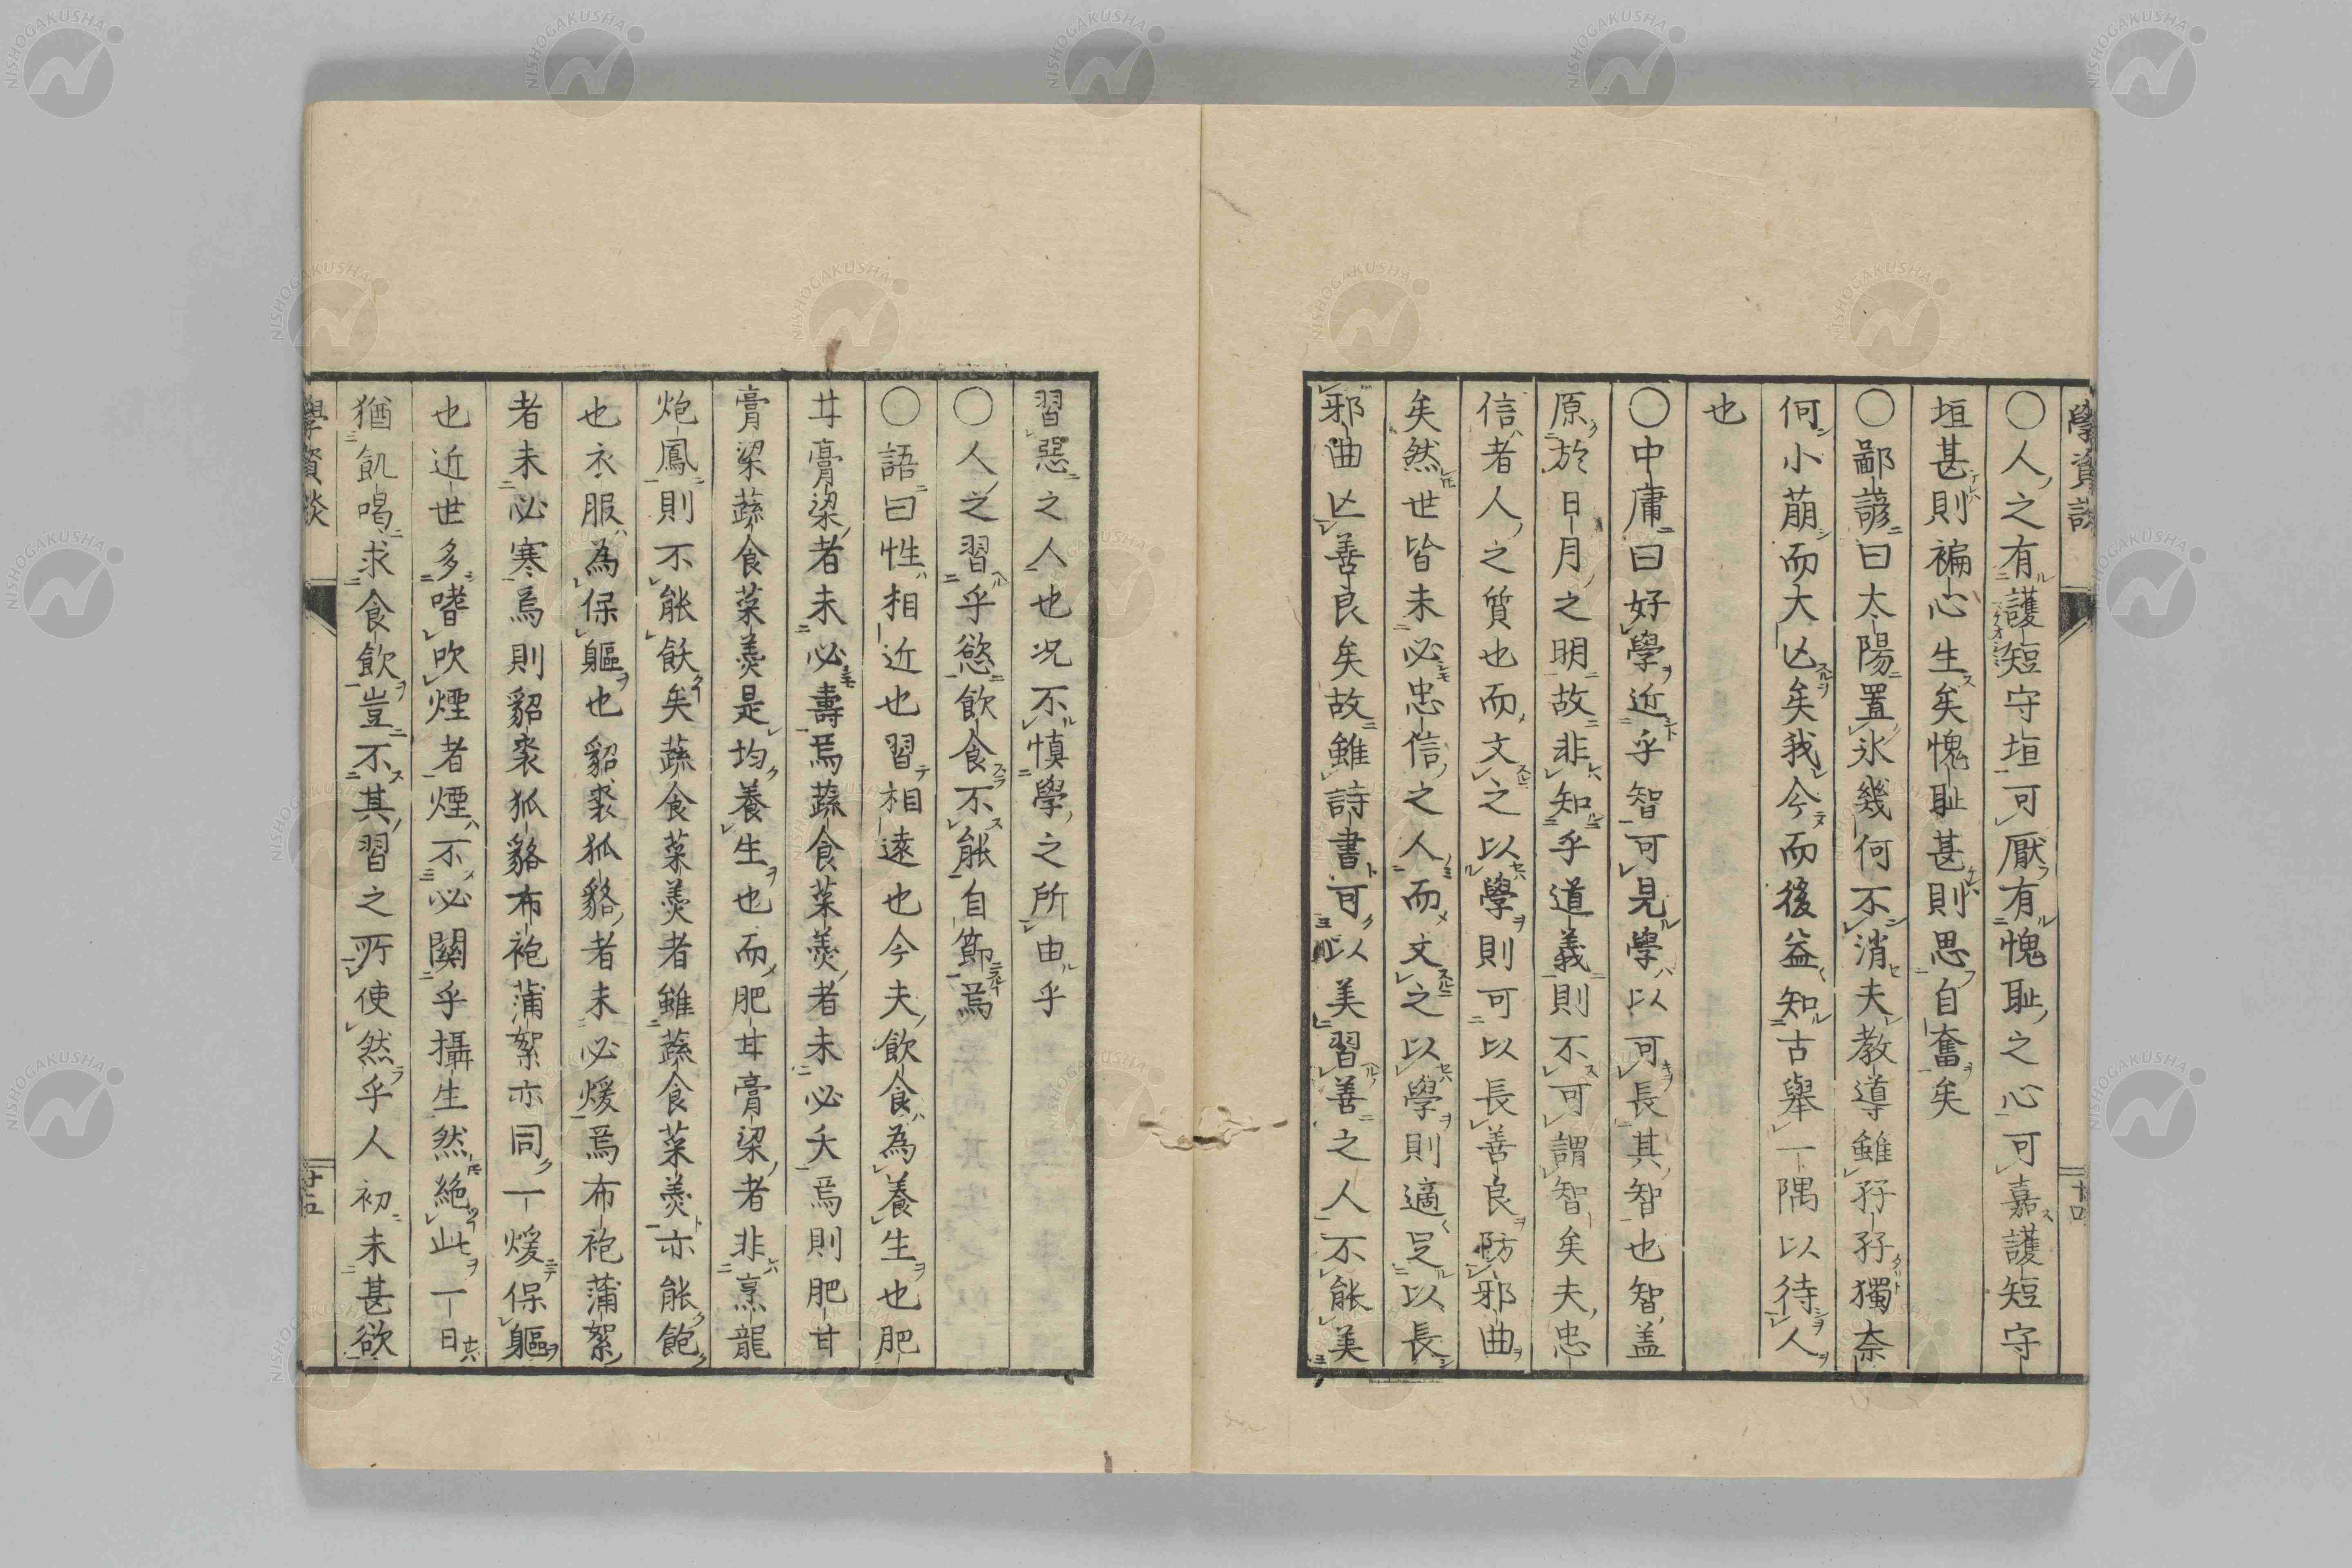 學資談
〇人之有護短守垣可厭有愧耻之心可嘉護短守
垣甚則褊心生矣愧耻甚則思自奮矣
〇鄙諺曰太陽置氷幾何不消夫教導雖孜孜獨奈
何小萠而大亾矣我今而後益知古舉一隅以待人
也
〇中庸曰好學近乎智可見學以可長其智也智盖
原於日月之明故非知乎道義則不可謂智矣夫忠
信者人之質也而文之以學則可以長善良防邪曲
矣然世皆未必忠信之人而文之以學則適足以長
邪曲亾善良矣故雖詩書可以美習善之人不能美
習惡之人也况不慎學之所由乎
〇人之習乎慾飲食不能自節焉
〇語曰性相近也習相遠也今夫飲食為養生也肥
甘膏梁者未必壽焉蔬食菜羹者未必夭焉則肥甘
膏梁蔬食菜羹是均養生也而肥甘膏梁者非烹龍
炮鳳則不能飫矣蔬食菜羹者雖蔬食菜羹亦能飽
也衣服為保軀也貂裘狐貉者未必煖焉布袍蒲絮
者未必寒焉則貂裘狐貉布袍蒲絮亦同一煖保軀
也近世多嗜吹煙者煙不必關乎攝生然絶此一日
猶飢喝求食飲豈不其習之所使然乎人初未甚欲
學資談